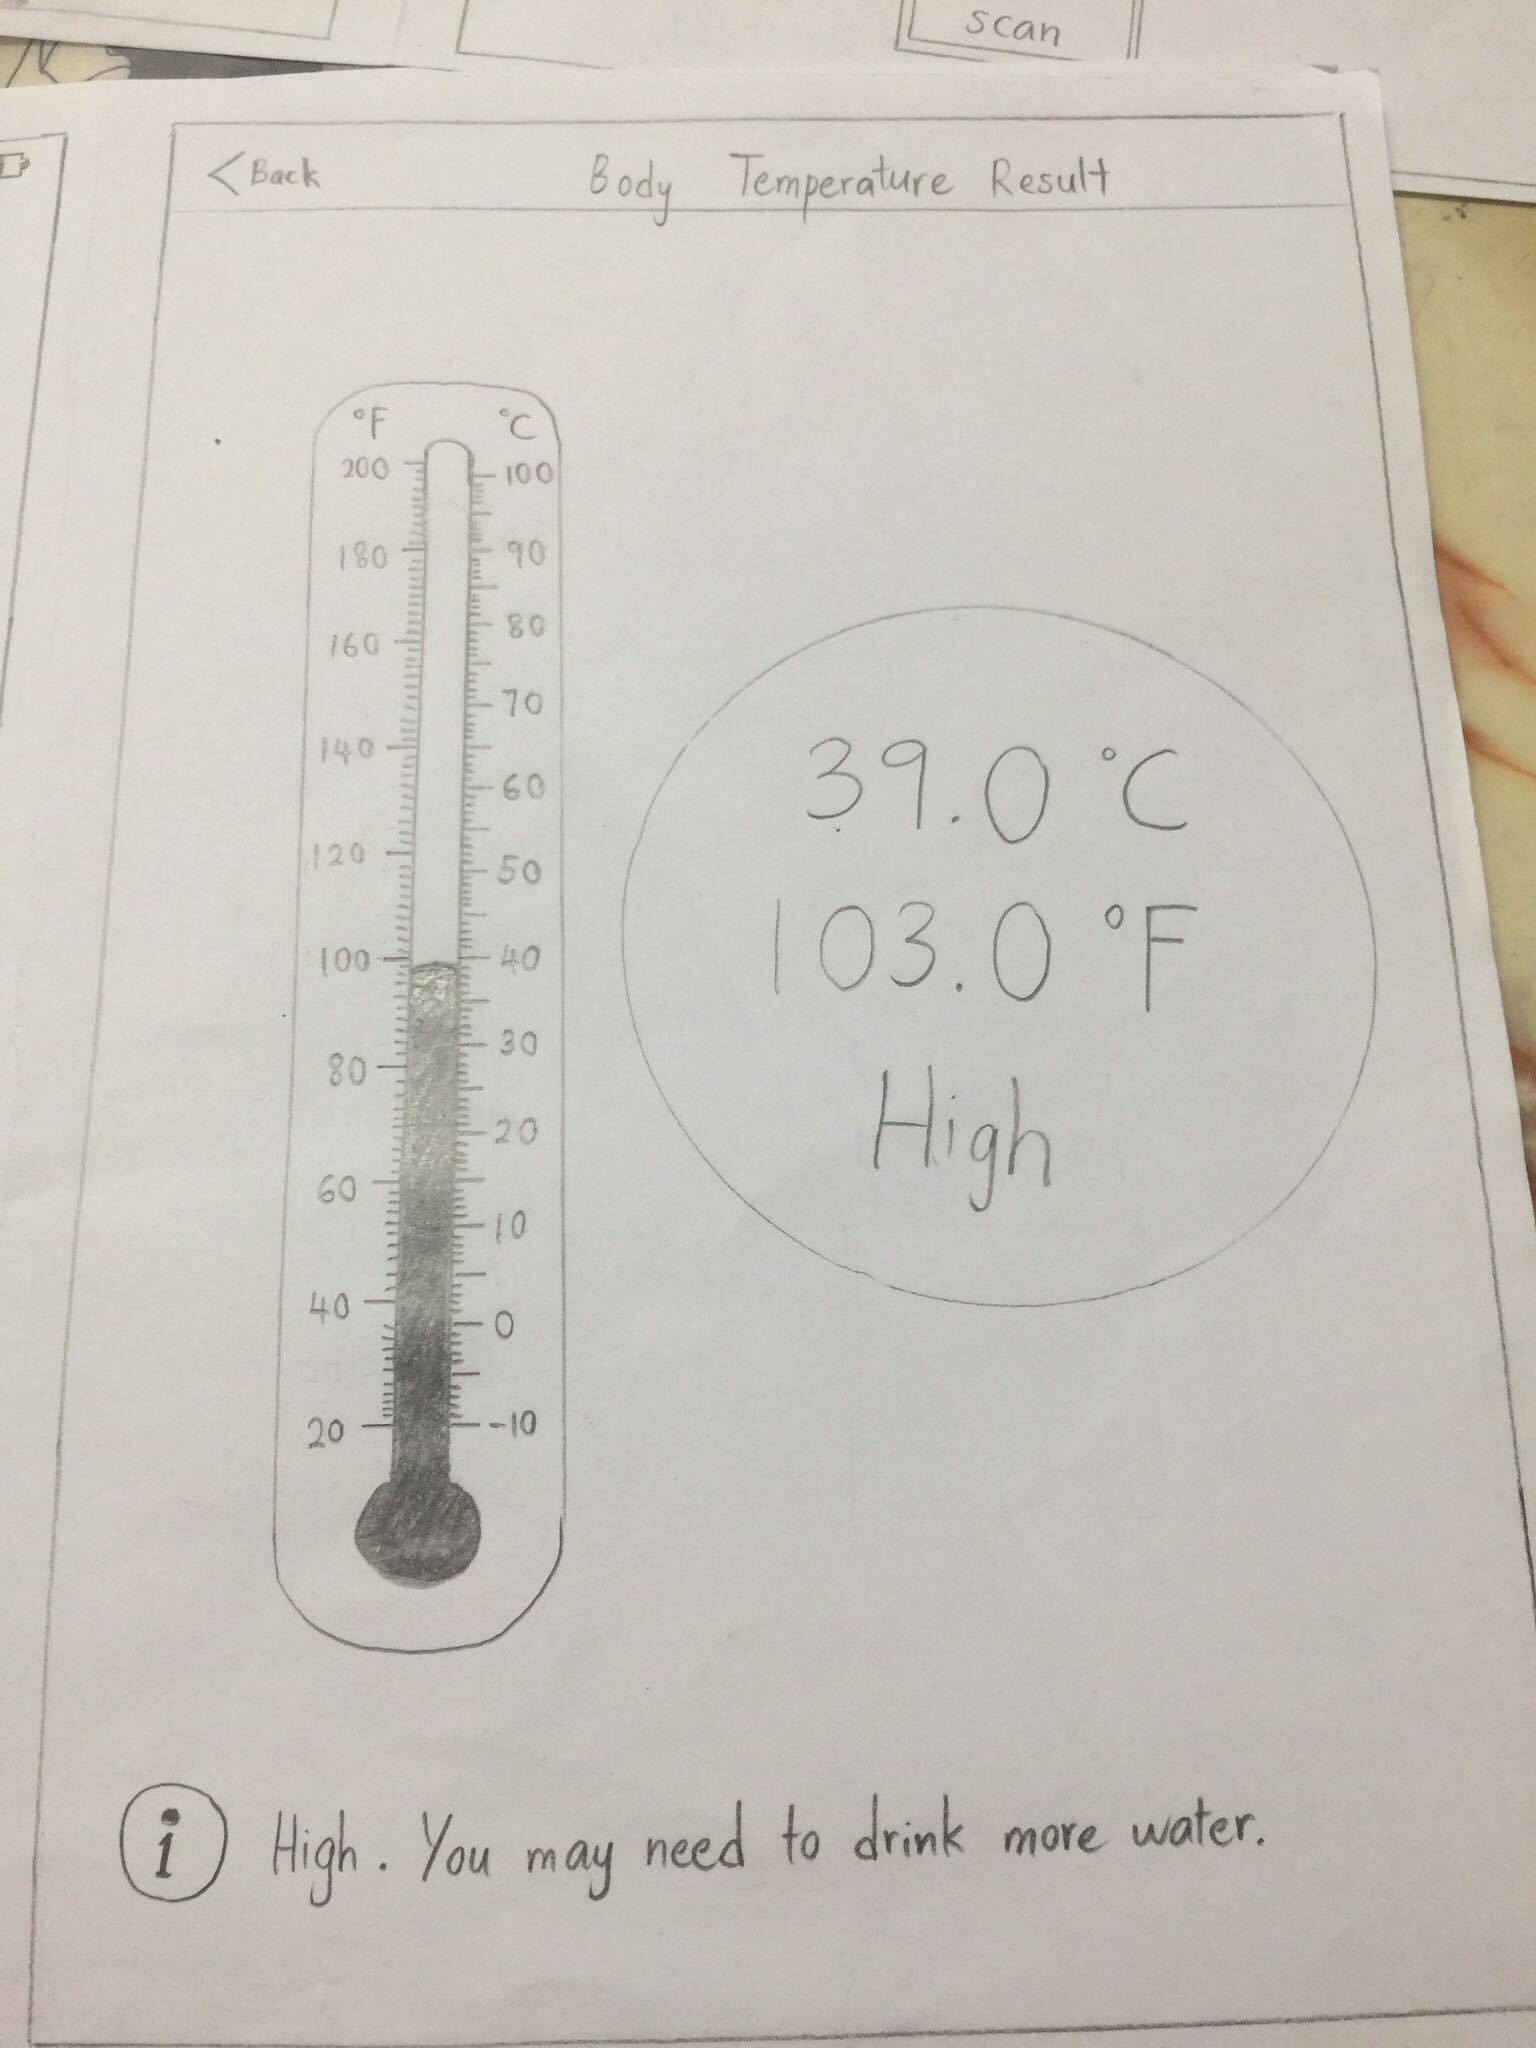 scan
< Back Body Temperature Result
°F °C
200 100
180 90
160 80
140 70
120 60
100 50
80 40
60 30
40 20
20 10
0
-10
39.0 °C
103.0 °F
High
i High. You may need to drink more water.